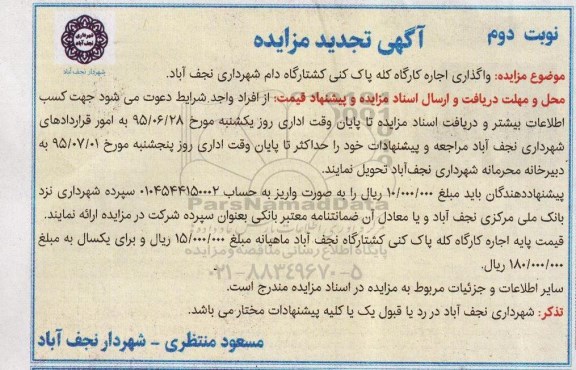 نوبت دوم
آگهی تجدید مزایده
شهرداری نجف آباد
شهردار نجف آباد
موضوع مزایده: واگذاری اجاره کارگاه کله پاک کنی کشتارگاه دام شهرداری نجف آباد.
محل و مهلت دریافت و ارسال اسناد مزایده و پیشنهاد قیمت: از افراد واجد شرایط دعوت می شود جهت کسب
اطلاعات بیشتر و دریافت اسناد مزایده تا پایان وقت اداری روز یکشنبه مورخ ۹۵/۰۶/۲۸ به امور قراردادهای
شهرداری نجف آباد مراجعه و پیشنهادات خود را حداکثر تا پایان وقت اداری روز پنجشنبه مورخ ۹۵/۰۷/۰۱ به
دبیرخانه محرمانه شهرداری نجف‌آباد تحویل نمایند.
پیشنهاددهندگان باید مبلغ ۱۰/۰۰۰/۰۰۰ ریال را به صورت واریز به حساب ۰۱۰۴۵۴۴۱۵۰۰۰۲ سپرده شهرداری نزد
بانک ملی مرکزی نجف آباد و یا معادل آن ضمانتنامه معتبر بانکی بعنوان سپرده شرکت در مزایده ارائه نمایند.
قیمت پایه اجاره کارگاه کله پاک کنی کشتارگاه نجف آباد ماهیانه مبلغ ۱۵/۰۰۰/۰۰۰ ریال و برای یکسال به مبلغ
۱۸۰/۰۰۰/۰۰۰ ریال.
سایر اطلاعات و جزئیات مربوط به مزایده در اسناد مزایده مندرج است.
تذکر: شهرداری نجف آباد در رد یا قبول یک یا کلیه پیشنهادات مختار می باشد.
مسعود منتظری - شهردار نجف آباد
ParsNamadData
پایگاه اطلاع رسانی مناقصه و مزایده
۰۲۱-۸۸۳۴۹۶۷۰-۵